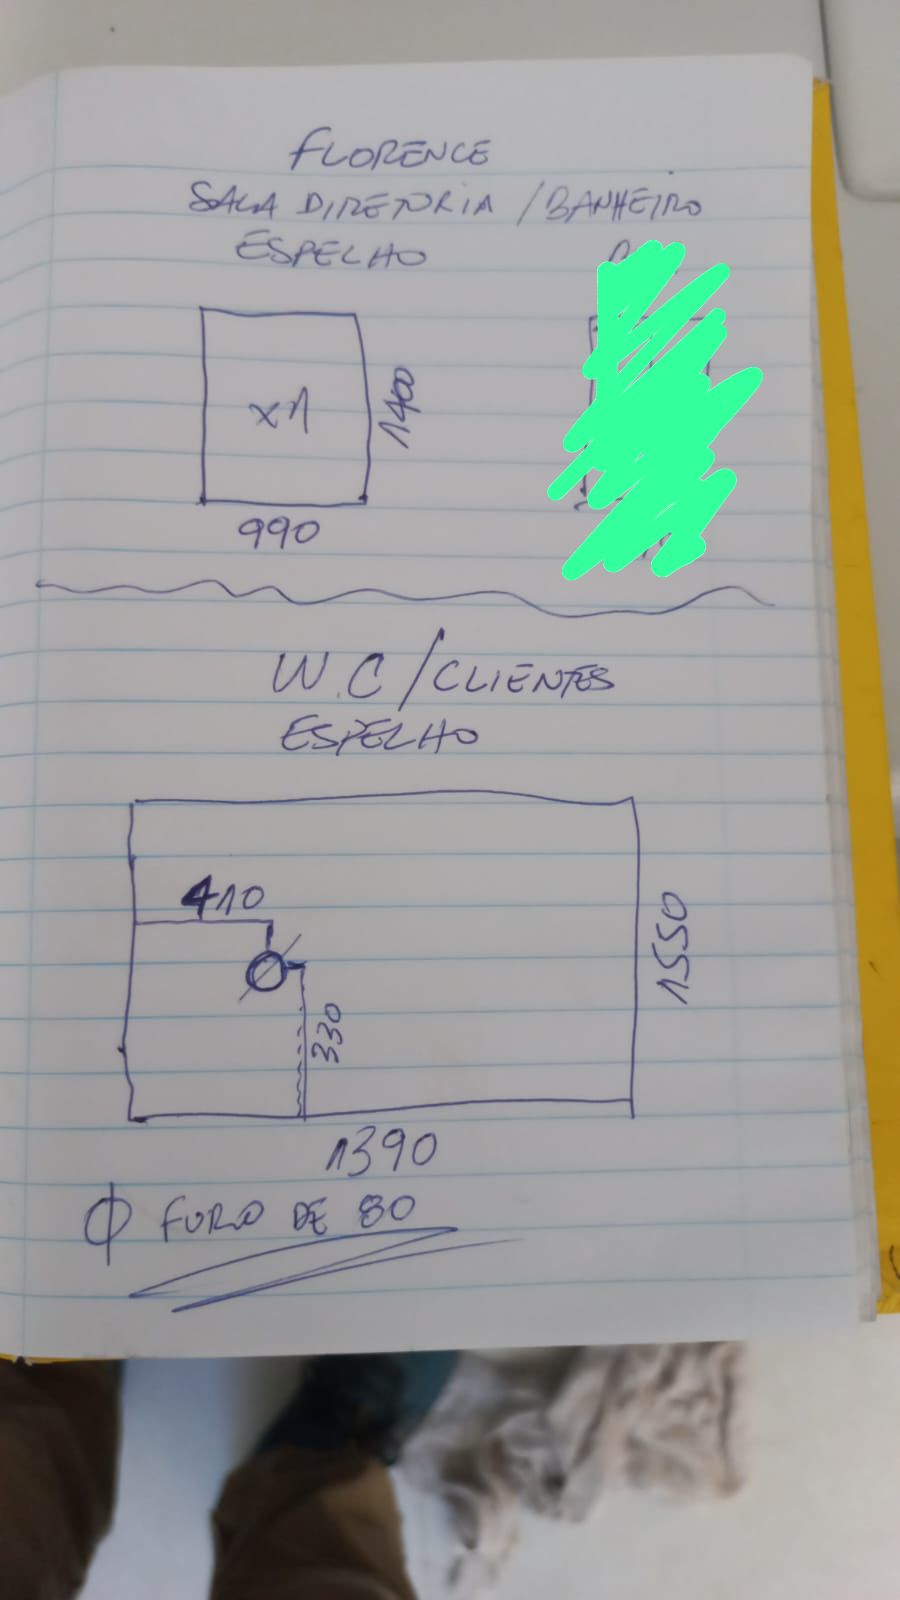 FLORENCE
SALA DIRETORIA / BANHEIRO
ESPELHO
x1
1400
990
W.C / CLIENTES
ESPELHO
410
330
1550
1390
Φ FURO DE 80